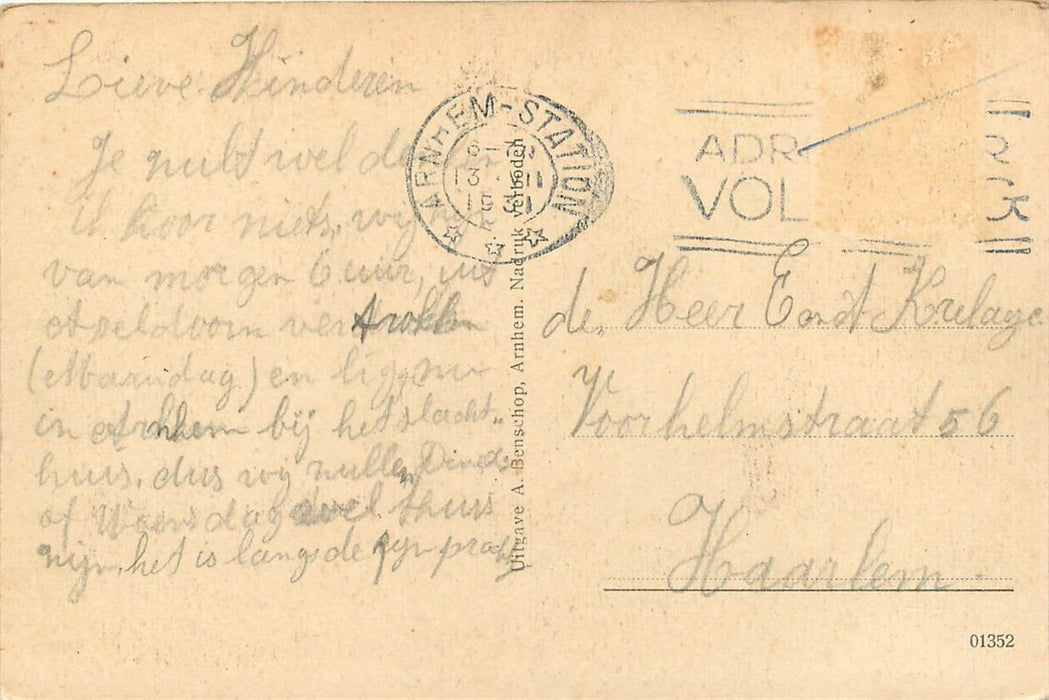 Lieve Kinderen
Je nult wel denken
ik hoor niets, wij zijn
van morgen 6 uur, uit
Apeldoorn vertrokken
(Maandag) en lig nu
in Arnhem bij het slacht„
huis, dus wij nullen Dinsd
of Woensdag wel thuis
nijn, het is langs de Ryn prachtig
ARNHEM-STATION
13 VII
1931
ADR
VOL
Uitgave A. Benschop, Arnhem. Nadruk verboden
de Heer E Krelage
Voorhelmstraat 56
Haarlem.
01352